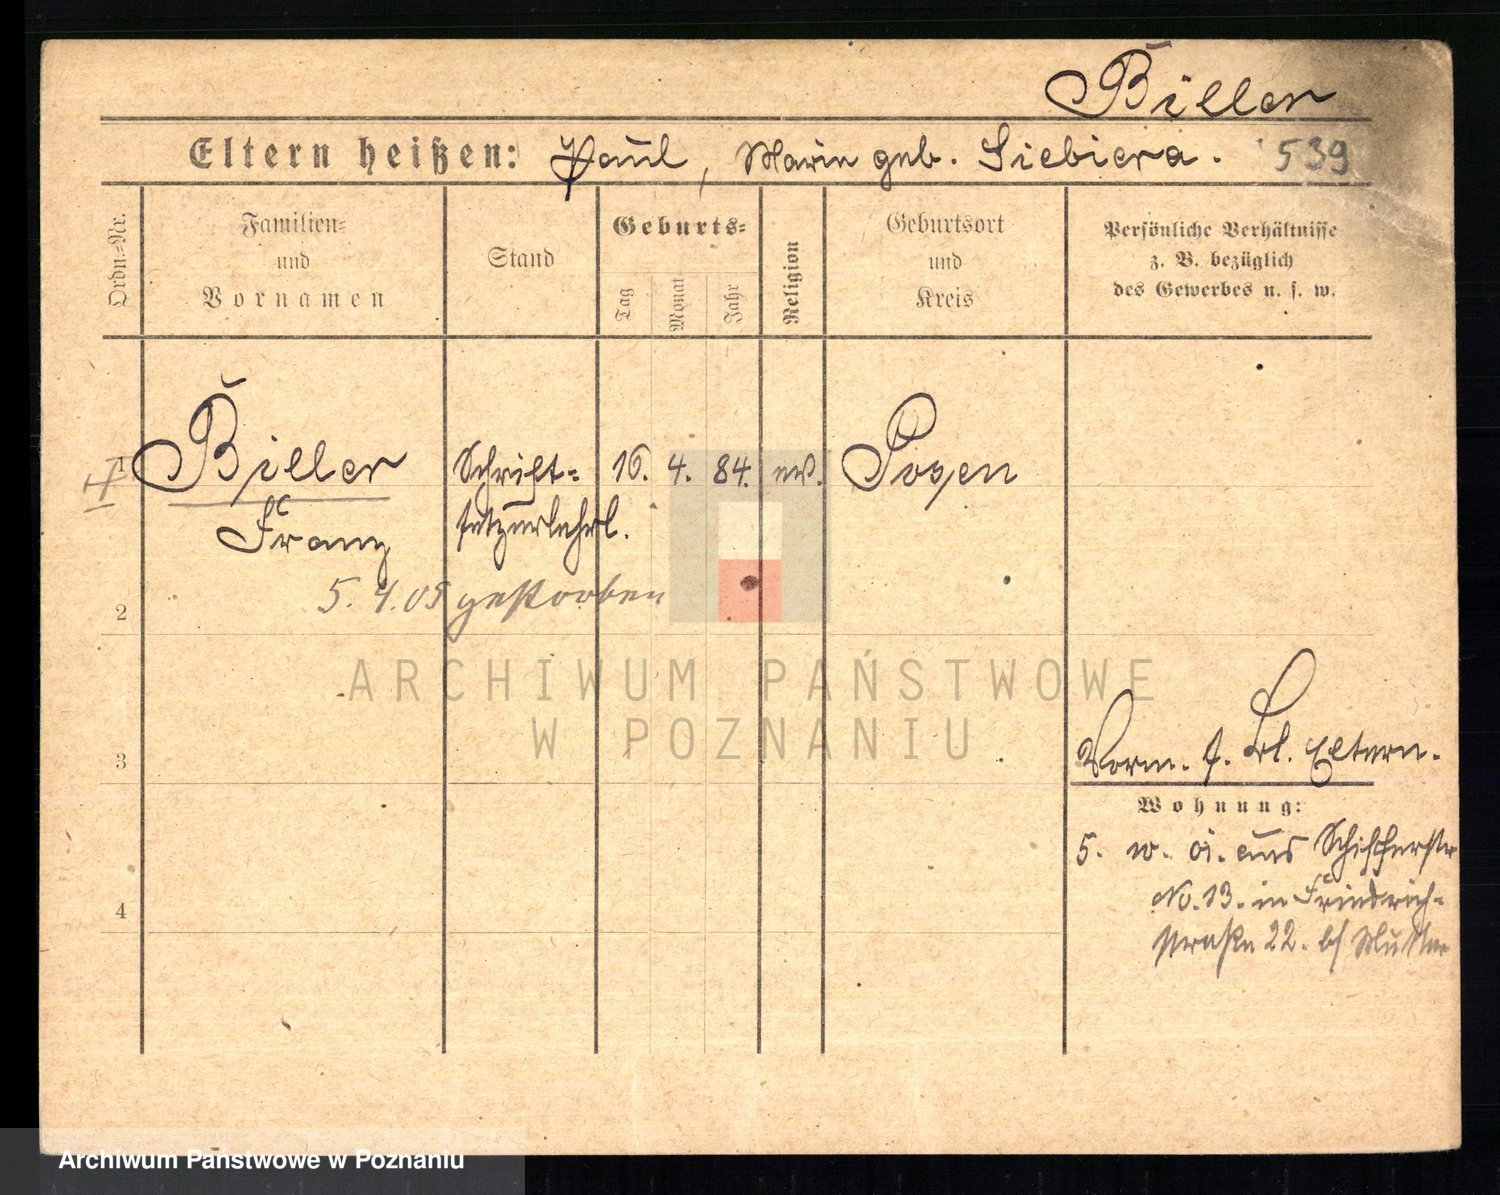 Biller
Eltern heißen: Paul, Marie geb. Siebiera. 539
Ordn.-Nr.
Familien-
und
Vornamen
Stand
Geburts-
Tag
Monat
Jahr
Religion
Geburtsort
und
Kreis
Persönliche Verhältnisse
z. B. bezüglich
des Gewerbes u. s. w.
1 Biller Schrift- 16. 4. 84. ev. Posen
Franz setzerlehrl.
5. 4. 05 gestorben
2
ARCHIWUM PAŃSTWOWE
W POZNANIU
3
Vorm. f. Bl. Eltern.
Wohnung:
5. aus Schifferstr
No. 13. in Friedrich-
straße 22. b/ Mutter
4
Archiwum Państwowe w Poznaniu